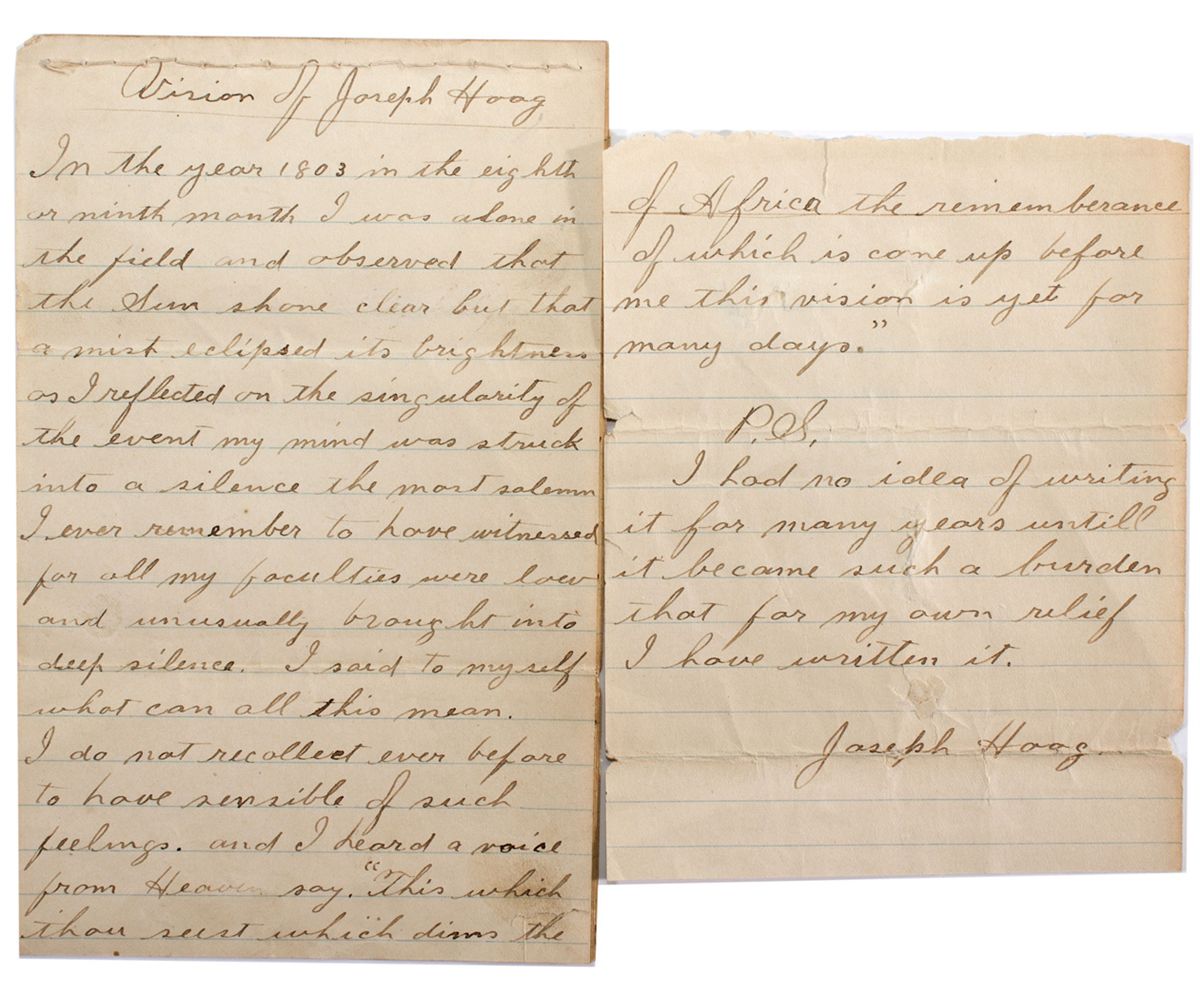 Vision Of Joseph Hoag
In the year 1803 in the eighth
or ninth month I was alone in
the field and observed that
the Sun shone clear but that
a mist eclipsed its brightness
as I reflected on the singularity of
the event my mind was struck
into a silence the most solemn
I ever remember to have witnessed
for all my faculties were low
and unusually brought into
deep silence. I said to myself
what can all this mean.
I do not recollect ever before
to have sensible of such
feelings. and I heard a voice
from Heaven say. "This which
thou seest which dims the
of Africa the rememberance
of which is come up before
me this vision is yet for
many days."
P.S.
I had no idea of writing
it for many years untill
it became such a burden
that for my own relief
I have written it.
Joseph Hoag.